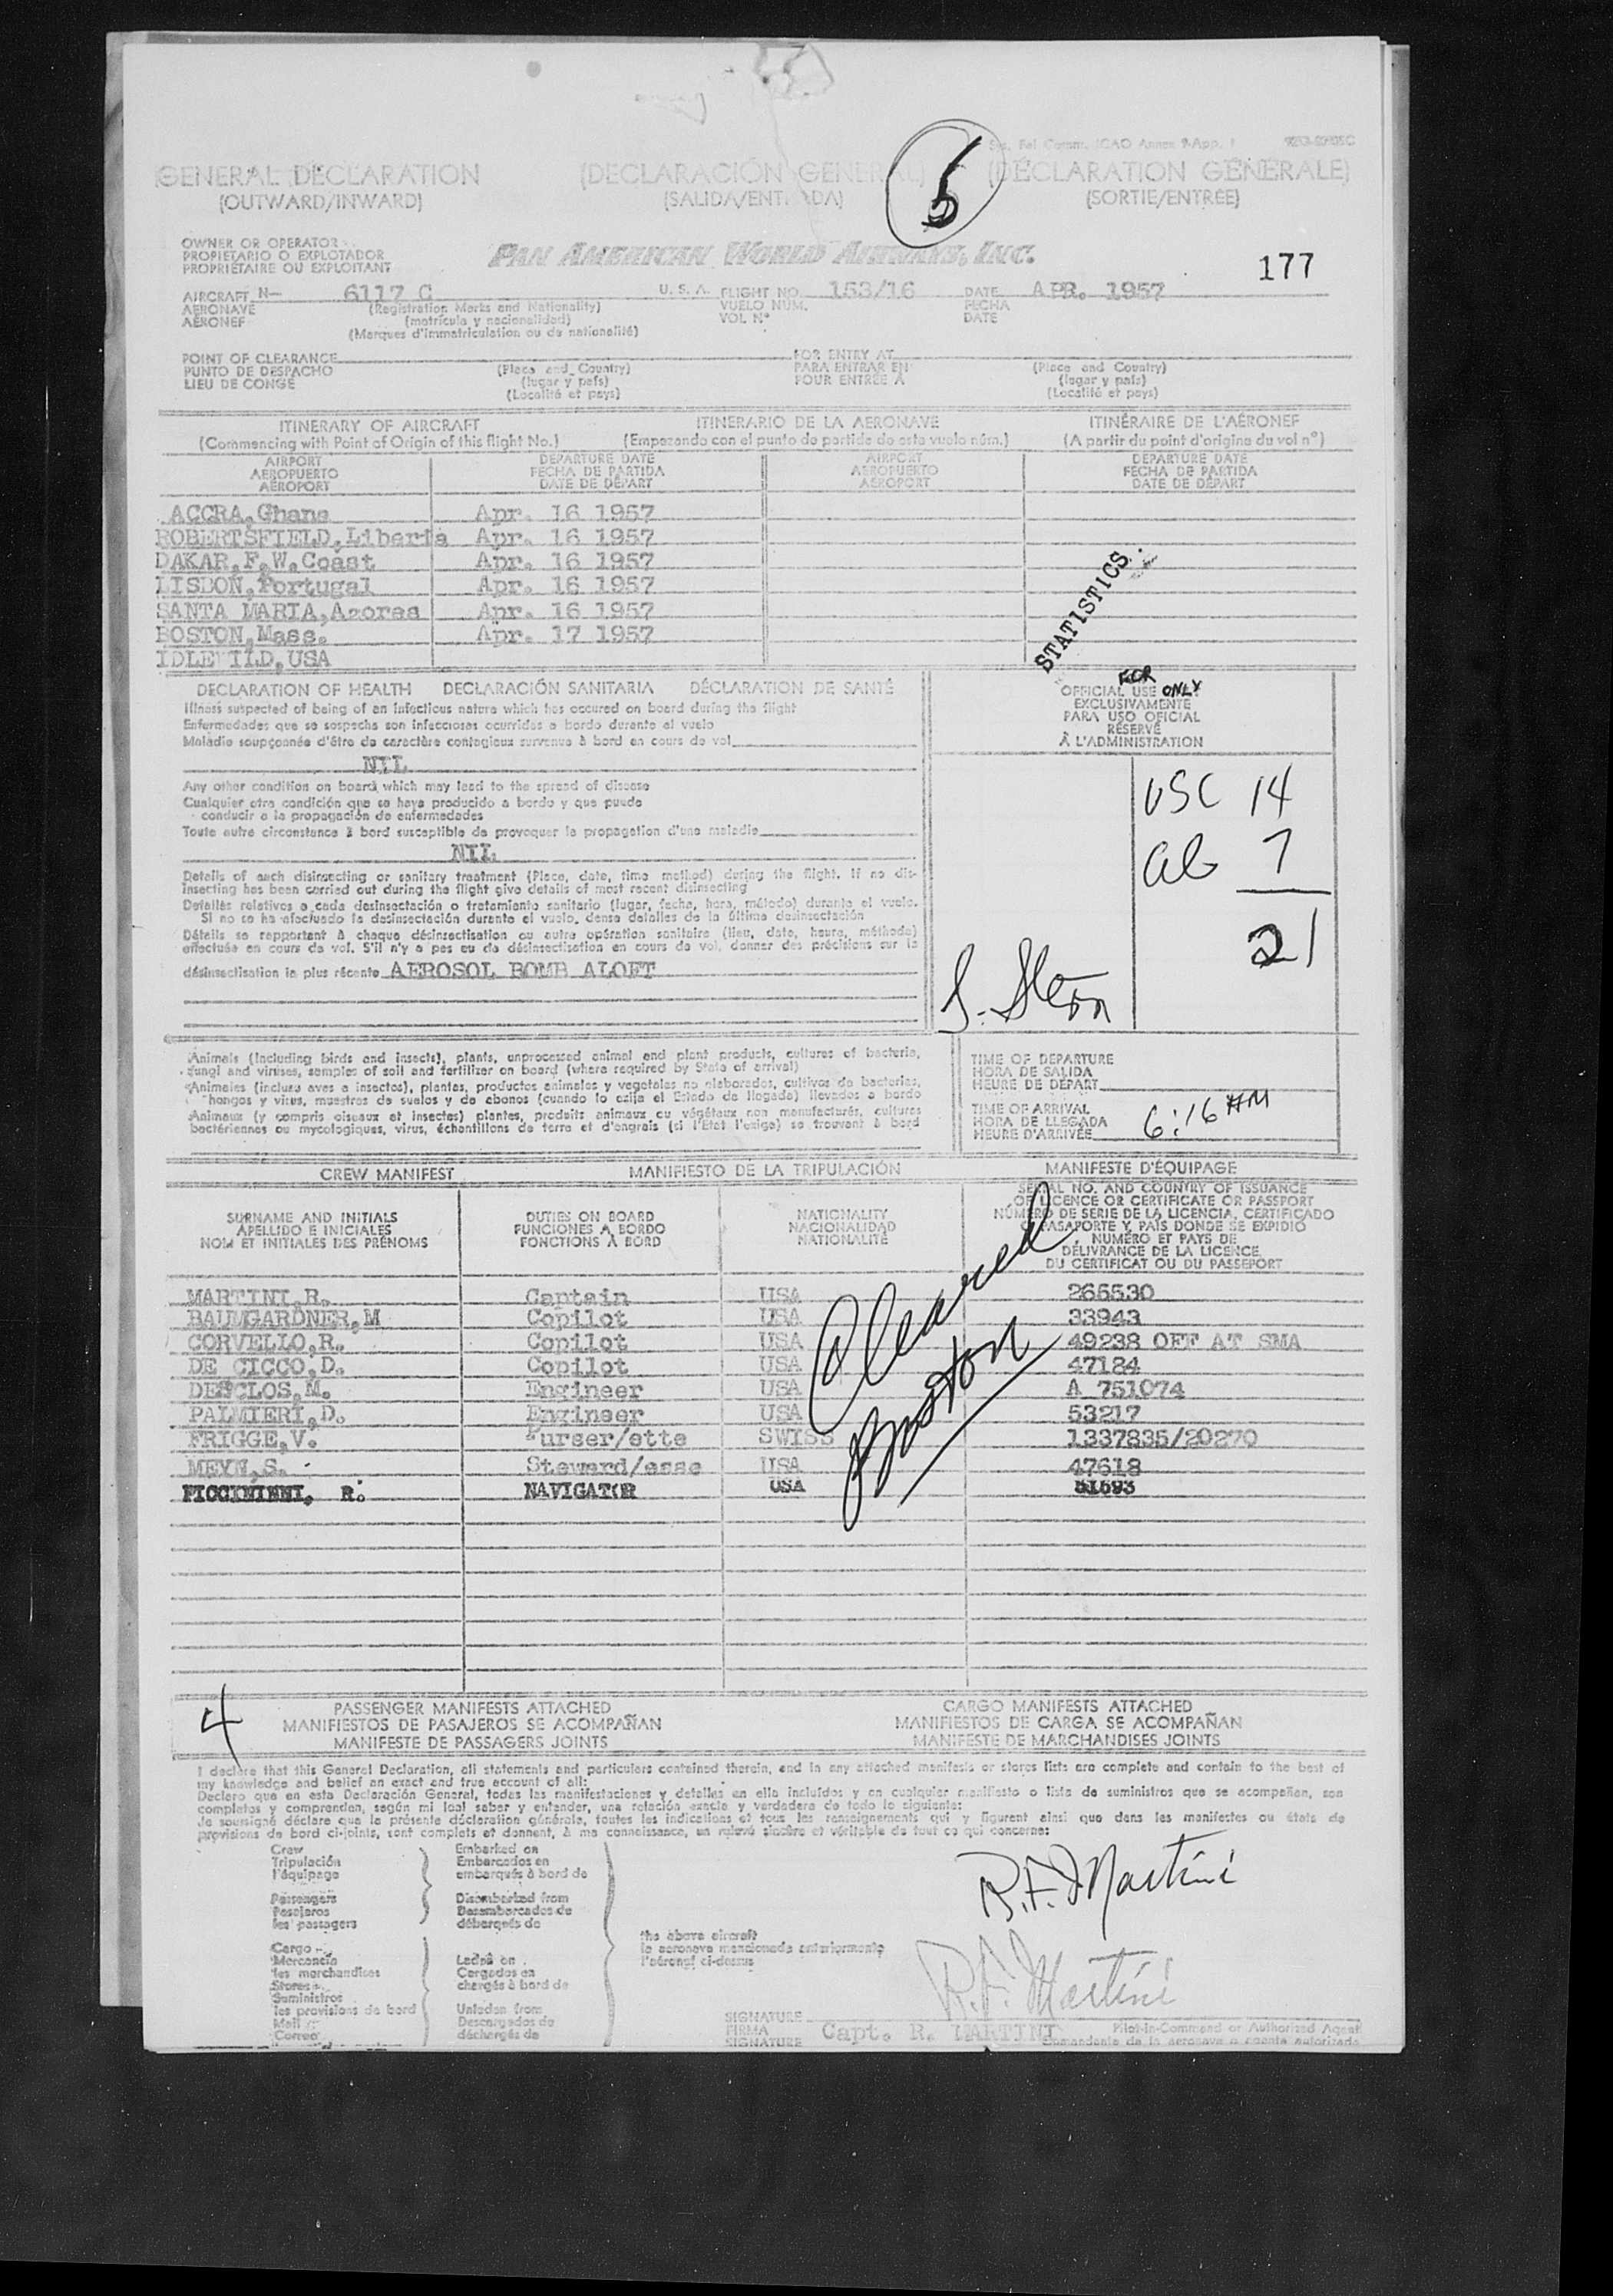 5
GENERAL DECLARATION (DECLARACIÓN GENERAL) (DÉCLARATION GÉNÉRALE)
(OUTWARD/INWARD) (SALIDA/ENTRADA) (SORTIE/ENTRÉE)
OWNER OR OPERATOR
PROPIETARIO O EXPLOTADOR
PROPRIÉTAIRE OU EXPLOITANT
PAN AMERICAN WORLD AIRWAYS, INC.
177
AIRCRAFT N- 6117 C U. S. A. FLIGHT NO. 153/16 DATE APR. 1957
AERONAVE (Registration Marks and Nationality) VUELO NUM. FECHA
AÉRONEF (matrícula y nacionalidad) VOL N° DATE
(Marques d'immatriculation ou de nationalité)
POINT OF CLEARANCE FOR ENTRY AT
PUNTO DE DESPACHO (Place and Country) PARA ENTRAR EN (Place and Country)
LIEU DE CONGÉ (lugar y país) POUR ENTRÉE À (lugar y país)
(Localité et pays) (Localité et pays)
ITINERARY OF AIRCRAFT ITINERARIO DE LA AERONAVE ITINÉRAIRE DE L'AÉRONEF
(Commencing with Point of Origin of this flight No.) (Empezando con el punto de partida de este vuelo núm.) (A partir du point d'origine du vol n°)
AIRPORT DEPARTURE DATE AIRPORT DEPARTURE DATE
AEROPUERTO FECHA DE PARTIDA AEROPUERTO FECHA DE PARTIDA
AÉROPORT DATE DE DÉPART AÉROPORT DATE DE DÉPART
ACCRA, Ghana Apr. 16 1957
ROBERTSFIELD, Liberia Apr. 16 1957
DAKAR, F.W.Coast Apr. 16 1957
LISBON, Portugal Apr. 16 1957
SANTA MARIA, Azores Apr. 16 1957
BOSTON, Mass. Apr. 17 1957
IDLEWILD, USA
STATISTICS
DECLARATION OF HEALTH DECLARACIÓN SANITARIA DÉCLARATION DE SANTÉ
Illness suspected of being of an infectious nature which has occured on board during the flight
Enfermedades que se sospecha son infecciosas ocurridas a bordo durante el vuelo
Maladie soupçonnée d'être de caractère contagieux survenue à bord en cours de vol
NIL
FOR
OFFICIAL USE ONLY
EXCLUSIVAMENTE
PARA USO OFICIAL
RÉSERVÉ
À L'ADMINISTRATION
Any other condition on board which may lead to the spread of disease
Cualquier otra condición que se haya producido a bordo y que puede
conducir a la propagación de enfermedades
Toute autre circonstance à bord susceptible de provoquer la propagation d'une maladie
NIL
USC 14
al 7
21
Details of each disinsecting or sanitary treatment (Place, date, time method) during the flight. If no dis-
insecting has been carried out during the flight give details of most recent disinsecting
Detalles relativos a cada desinsectación o tratamiento sanitario (lugar, fecha, hora, método) durante el vuelo.
Si no se ha efectuado la desinsectación durante el vuelo, dense detalles de la última desinsectación
Détails se rapportant à chaque désinsectisation ou autre opération sanitaire (lieu, date, heure, méthode)
effectuée en cours de vol. S'il n'y a pas eu de désinsectisation en cours de vol, donner des précisions sur la
désinsectisation la plus récente AEROSOL BOMB ALOFT
S. Stern
Animals (including birds and insects), plants, unprocessed animal and plant products, cultures of bacteria,
fungi and viruses, samples of soil and fertilizer on board (where required by State of arrival)
Animales (incluso aves e insectos), plantas, productos animales y vegetales no elaborados, cultivos de bacterias,
hongos y virus, muestras de suelos y de abonos (cuando lo exija el Estado de llegada) llevados a bordo
Animaux (y compris oiseaux et insectes) plantes, produits animaux ou végétaux non manufacturés, cultures
bactériennes ou mycologiques, virus, échantillons de terre et d'engrais (si l'Etat l'exige) se trouvant à bord
TIME OF DEPARTURE
HORA DE SALIDA
HEURE DE DÉPART
TIME OF ARRIVAL
HORA DE LLEGADA
HEURE D'ARRIVÉE 6:16 AM
CREW MANIFEST MANIFIESTO DE LA TRIPULACIÓN MANIFESTE D'ÉQUIPAGE
SURNAME AND INITIALS
APELLIDO E INICIALES
NOM ET INITIALES DES PRÉNOMS
DUTIES ON BOARD
FUNCIONES A BORDO
FONCTIONS À BORD
NATIONALITY
NACIONALIDAD
NATIONALITÉ
SERIAL NO. AND COUNTRY OF ISSUANCE
OF LICENCE OR CERTIFICATE OR PASSPORT
NÚMERO DE SERIE DE LA LICENCIA, CERTIFICADO
O PASAPORTE Y PAÍS DONDE SE EXPIDIÓ
NUMÉRO ET PAYS DE
DÉLIVRANCE DE LA LICENCE,
DU CERTIFICAT OU DU PASSEPORT
MARTINI, R. Captain USA 266530
BAUMGARDNER, M Copilot USA 33943
CORVELLO, R. Copilot USA 49238 OFF AT SMA
DE CICCO, D. Copilot USA 47184
DESCLOS, M. Engineer USA A 751074
PALMIERI, D. Engineer USA 53217
FRIGGE, V. Purser/ette SWISS 1337835/20270
MEYN, S. Steward/esse USA 47618
PICCININNI, R. NAVIGATOR USA 51593
Cleared
Boston
4
PASSENGER MANIFESTS ATTACHED CARGO MANIFESTS ATTACHED
MANIFIESTOS DE PASAJEROS SE ACOMPAÑAN MANIFIESTOS DE CARGA SE ACOMPAÑAN
MANIFESTE DE PASSAGERS JOINTS MANIFESTE DE MARCHANDISES JOINTS
I declare that this General Declaration, all statements and particulars contained therein, and in any attached manifests or stores lists are complete and contain to the best of
my knowledge and belief an exact and true account of all:
Declaro que en esta Declaración General, todas las manifestaciones y detalles en ella incluidos y en cualquier manifiesto o lista de suministros que se acompañan, son
completos y comprenden, según mi leal saber y entender, una relación exacta y verdadera de todo lo siguiente:
Je soussigné déclare que la présente déclaration générale, toutes les indications et tous les renseignements qui y figurent ainsi que dans les manifestes ou états de
provisions de bord ci-joints, sont complets et donnent, à ma connaissance, un relevé sincère et véritable de tout ce qui concerne:
Crew Embarked on
Tripulación Embarcados en
l'équipage embarqués à bord de
Passengers Disembarked from
Pasajeros Desembarcados de
les passagers débarqués de
Cargo
Mercancía Laded on
les marchandises Cargados en
Stores chargés à bord de
Suministros
les provisions de bord Unladen from
Mail Descargados de
Correo déchargés de
the above aircraft
la aeronave mencionada anteriormente
l'aéronef ci-dessus
R.F. Martini
R.F. Martini
SIGNATURE
FIRMA Capt. R. MARTINI Pilot-in-Command or Authorized Agent
SIGNATURE Comandante de la aeronave o agente autorizado